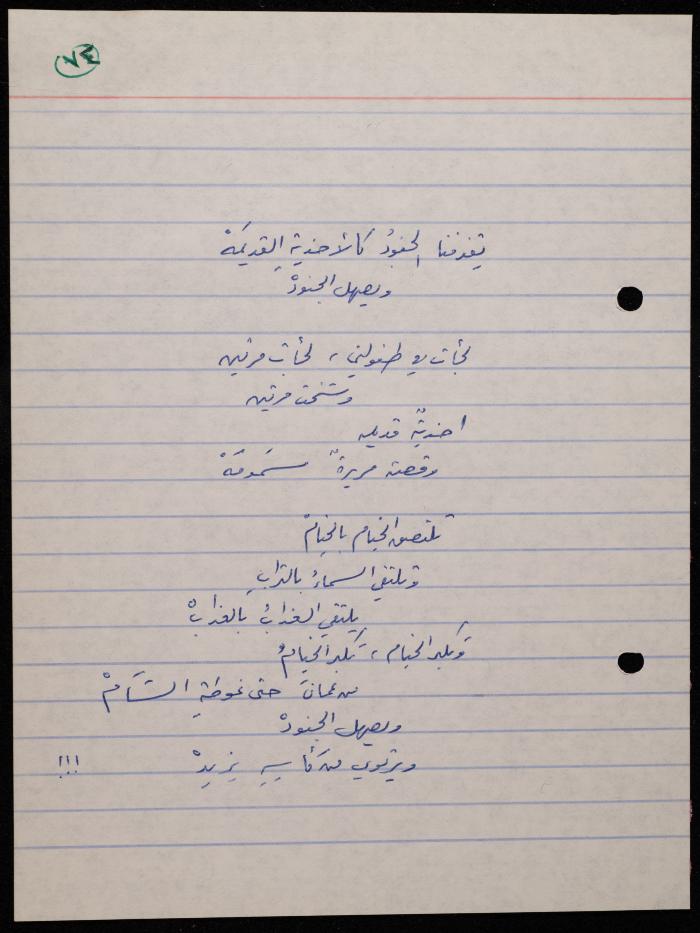 ٧٤
تقذفنا الجنودُ كالأحذيةِ القديمَهْ
ويصهل الجنودْ
لجأت في طفولتي، لجأت مرتين
وشخت مرتين
احذيةٌ قديمه
وقصة مريرةٌ مسمومَهْ
تلتصق الخيام بالخيامْ
وتلتقي السماءُ بالترابِ
يلتقي العذابُ بالعذابْ
وتكبر الخيام، تكبر الخيامُ
من عمانَ حتى غوطةِ الشَآمْ
ويصهل الجنودْ
ويرتوي من كأسِهِ يزيدْ !!!